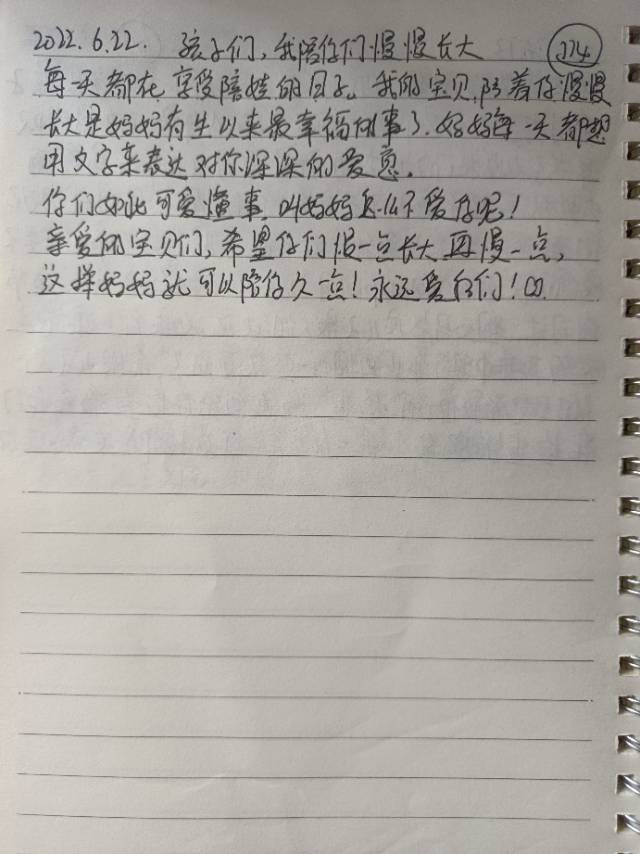 2022.6.22. 孩子们，我陪你们慢慢长大
每一天都在享受陪娃的日子。我的宝贝，陪着你慢慢
长大是妈妈有生以来最幸福的事了，妈妈每一天都想
用文字来表达对你深深的爱意。
你们如此可爱懂事，叫妈妈怎么不爱你呢！
亲爱的宝贝们，希望你们慢一点长大再慢一点，
这样妈妈就可以陪你久一点！永远爱你们！